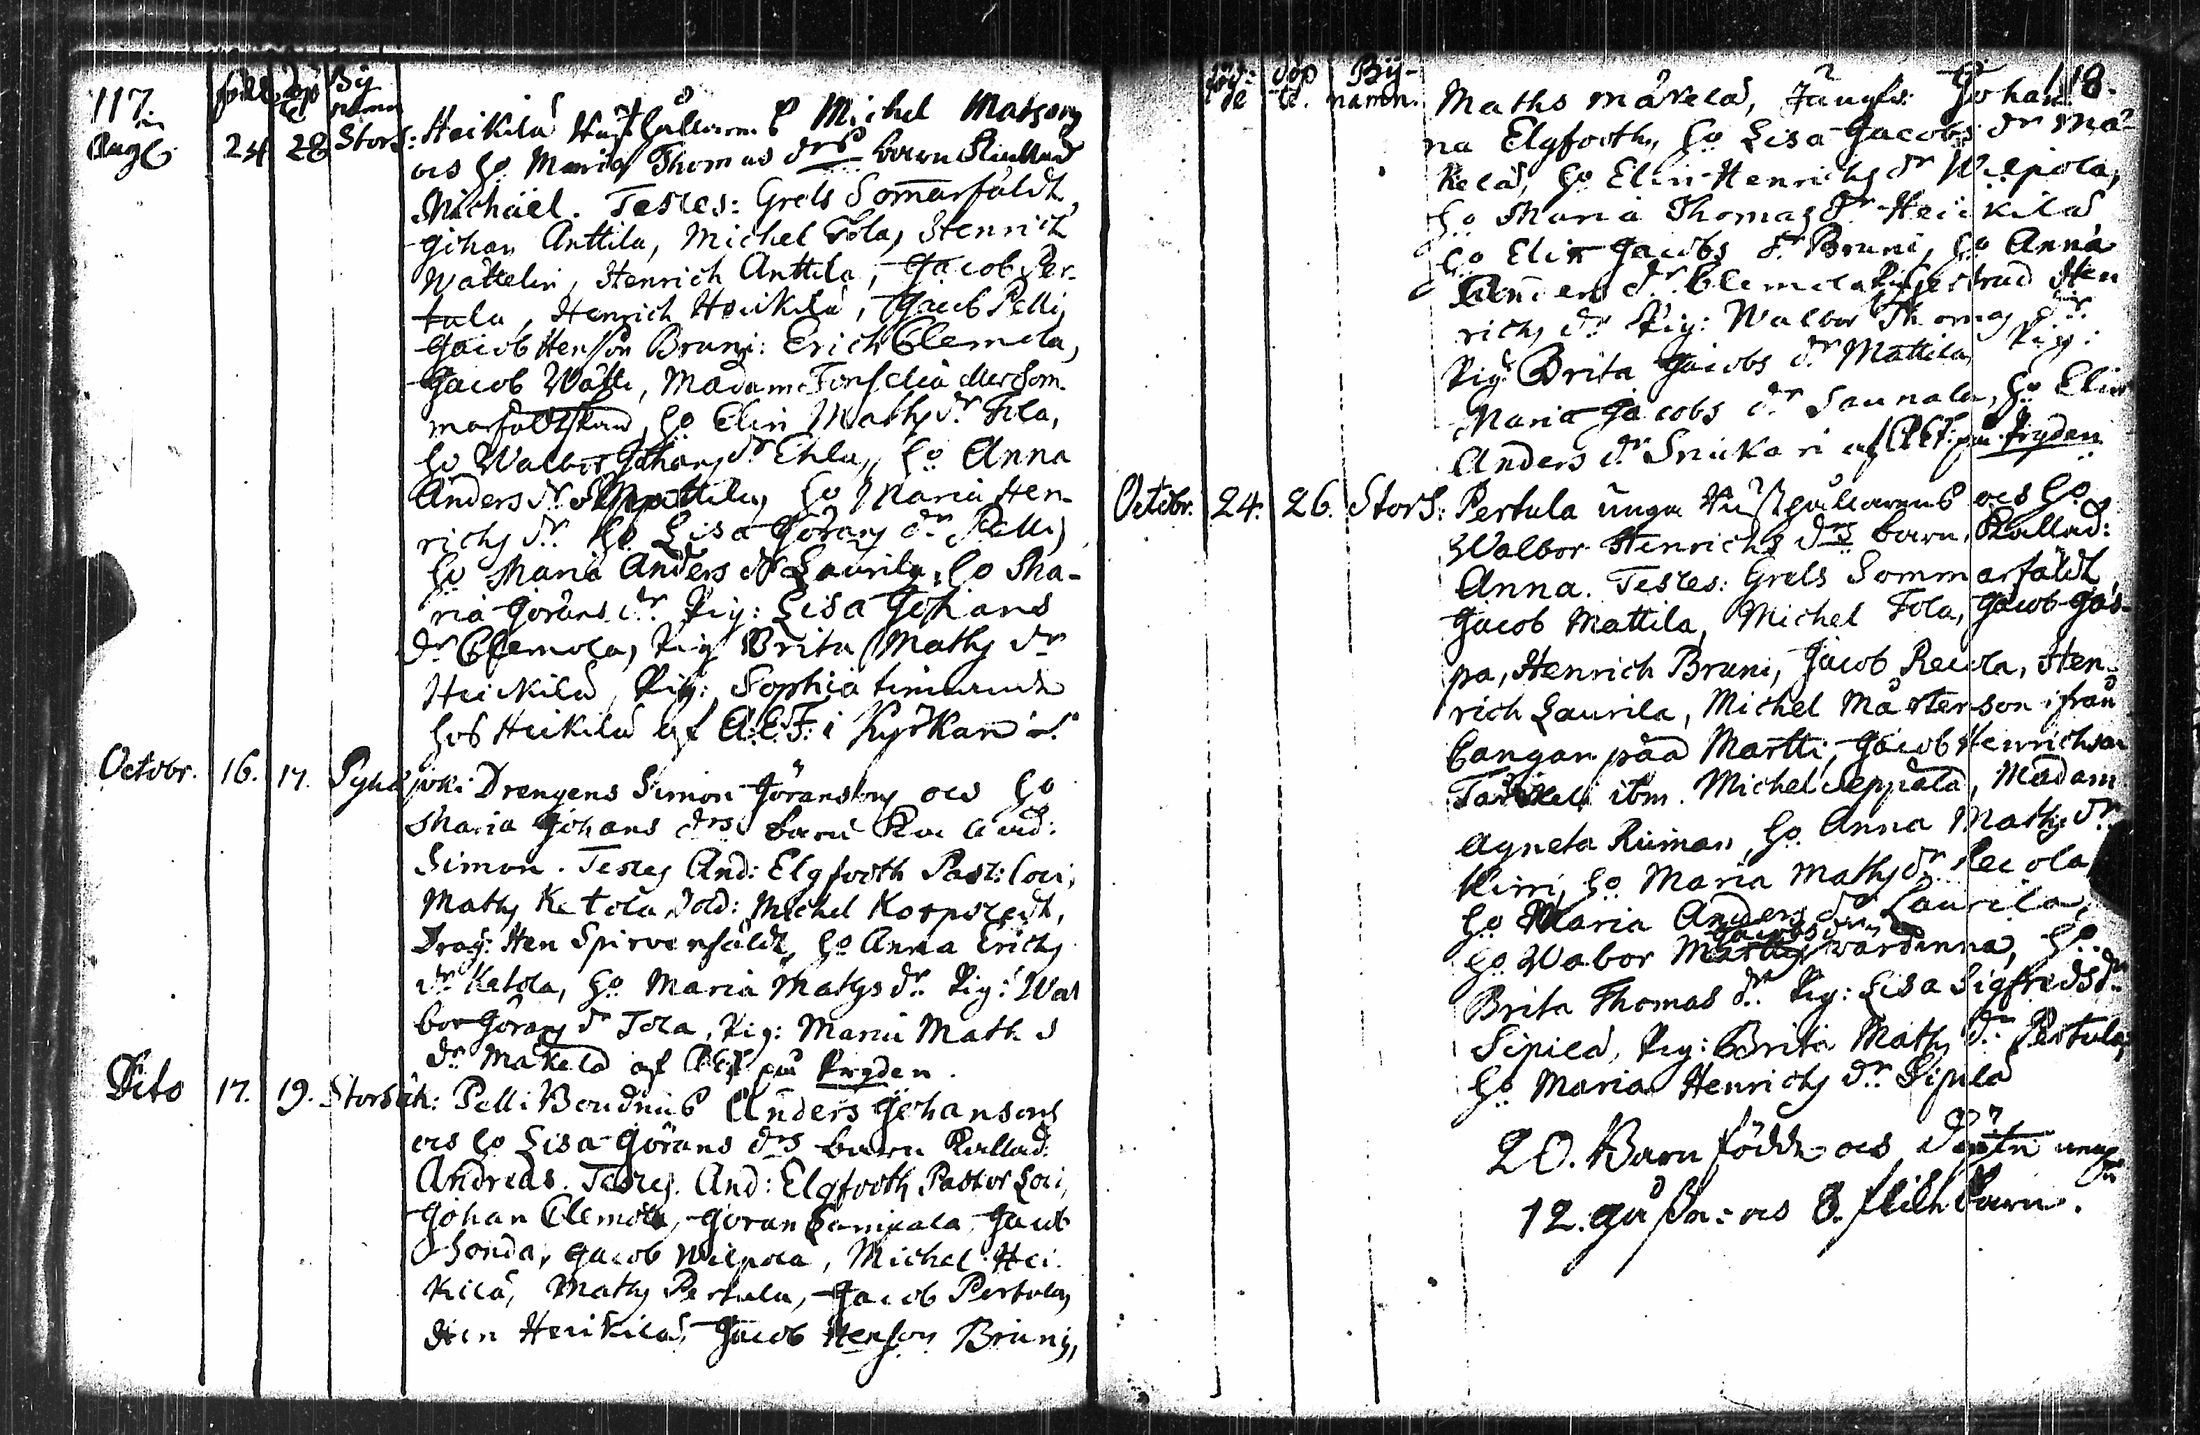 117.
född döp te By namn
Aug: 24 28 Stors: Heikilä Michel Matsons
ocs ho Maria Thomas drs barn Kallad
Michäel. Testes: Grels Sommarfäldt,
Johan Anttila, Michel Tola, Henrich
Wättelin, Henrich Anttila, Jacob Per-
tula, Henrich Heickilä, Jacob Pelli,
Jacob Henson Bruni: Erich Clemola,
Jacob Wätti, Madame eller Som-
ho Elin Maths dr Tola,
ho Walbor Johans dr Ehla, ho Anna
Anders dr ho Maria Hen-
richs dr ho Lisa Görans dr Pelli,
ho Maria Anders dr Laurila, ho Ma-
ria Görans dr Pig: Lisa Johans
dr Clemola, Pig Brita Maths dr
Heickilä, Pig: Sophia
hos Heikilä af A.E.F: i Kyrkan
Octobr. 16. 17. Pyhäjoki Drengens Simon Göransons ocs ho
Maria Johans drs barn Kallad:
Simon. Testes And: Elgfooth Past: Loci,
Maths Ketola, Sold: Michel Korpstedt,
Drag: Hen Spirvenfäldt, ho Anna Erichs
dr Ketola, ho Maria Mathsdr. Pig: Wal
bor Görans dr Tola, Pig: Maria Maths
dr Mäkelä af A.E.F på Pryden.
Dito 17. 19. Storsåk: Pelli Bondens Anders Johansons
ocs ho Lisa Görans drs barn Kallad:
Andreas. Testes. And: Elgfooth Pastor Loci,
Johan Clemola, Göran Jacob
Honda, Jacob Wilpola, Michel Hei-
kilä, Maths Pertula, Jacob Pertula,
Hen Heikilä, Jacob Henson Bruni,
118.
föd: de döp te. By- namn.
Maths Mäkelä, Jungfr: Johan
na Elgfooth, ho Lisa Jacobs dr Mä-
kelä, ho Elin Henrichs dr Wilpola,
ho Maria Thomas dr Heikilä
ho Elin Jacobs dr Bruni, ho Anna
dr Clemola Pig Gertrud Hen
richs dr Pig: Walbor Thomas dr
Pig: Brita Jacobs dr Mattila, Pig:
Maria Jacobs dr Saunala, ho Elin
Anders dr Snickari af A.E.F: på Pryden
Octobr. 24. 26. Stors: Pertula unga ocs ho
Walbor Henrichs drs barn, Kallad:
Anna. Testes: Grels Sommarfäldt,
Jacob Mattila, Michel Tola, Jacob Jas-
pa, Henrich Bruni, Jacob Recola, Hen-
rich Laurila, Michel Mårtenson ifrån
Cangan påå Martti, Jacob Henrichson
ibm. Michel Seppälä, Madam
Agneta Riiman, ho Anna Maths dr
Kirri, ho Maria Maths dr Recola
ho Maria Anders dr Laurila,
ho Wabor Jacobs dr wärdinna, ho
Brita Thomas dr Pig: Lisa Sigfredsdr
Sipilä, Pig: Brita Maths dr Pertula,
ho Maria Henrichs dr Sipilä
20. Barn födde ocs
12. ocs 8. flickbarn.